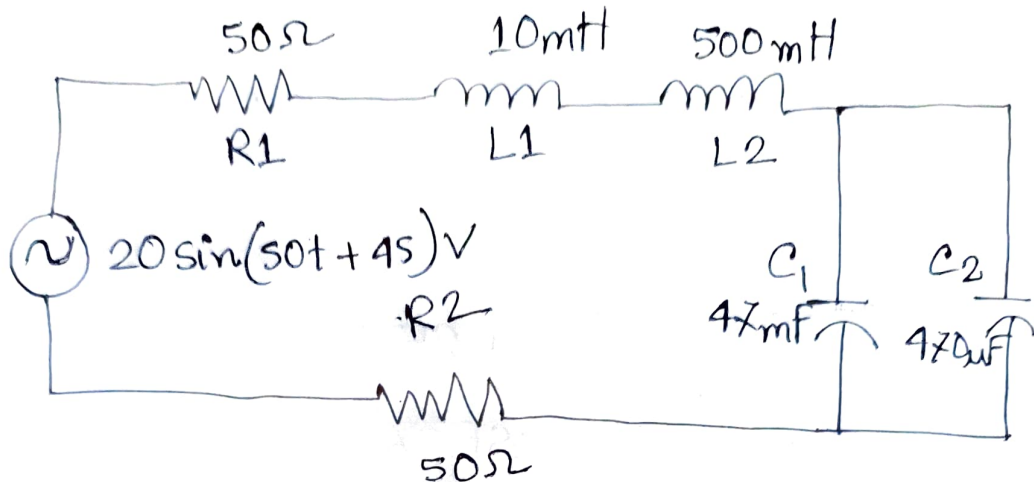 50Ω 10mH 500mH
R1 L1 L2
20 sin(50t + 45)V
R2
C1 C2
47mF 470uF
50Ω